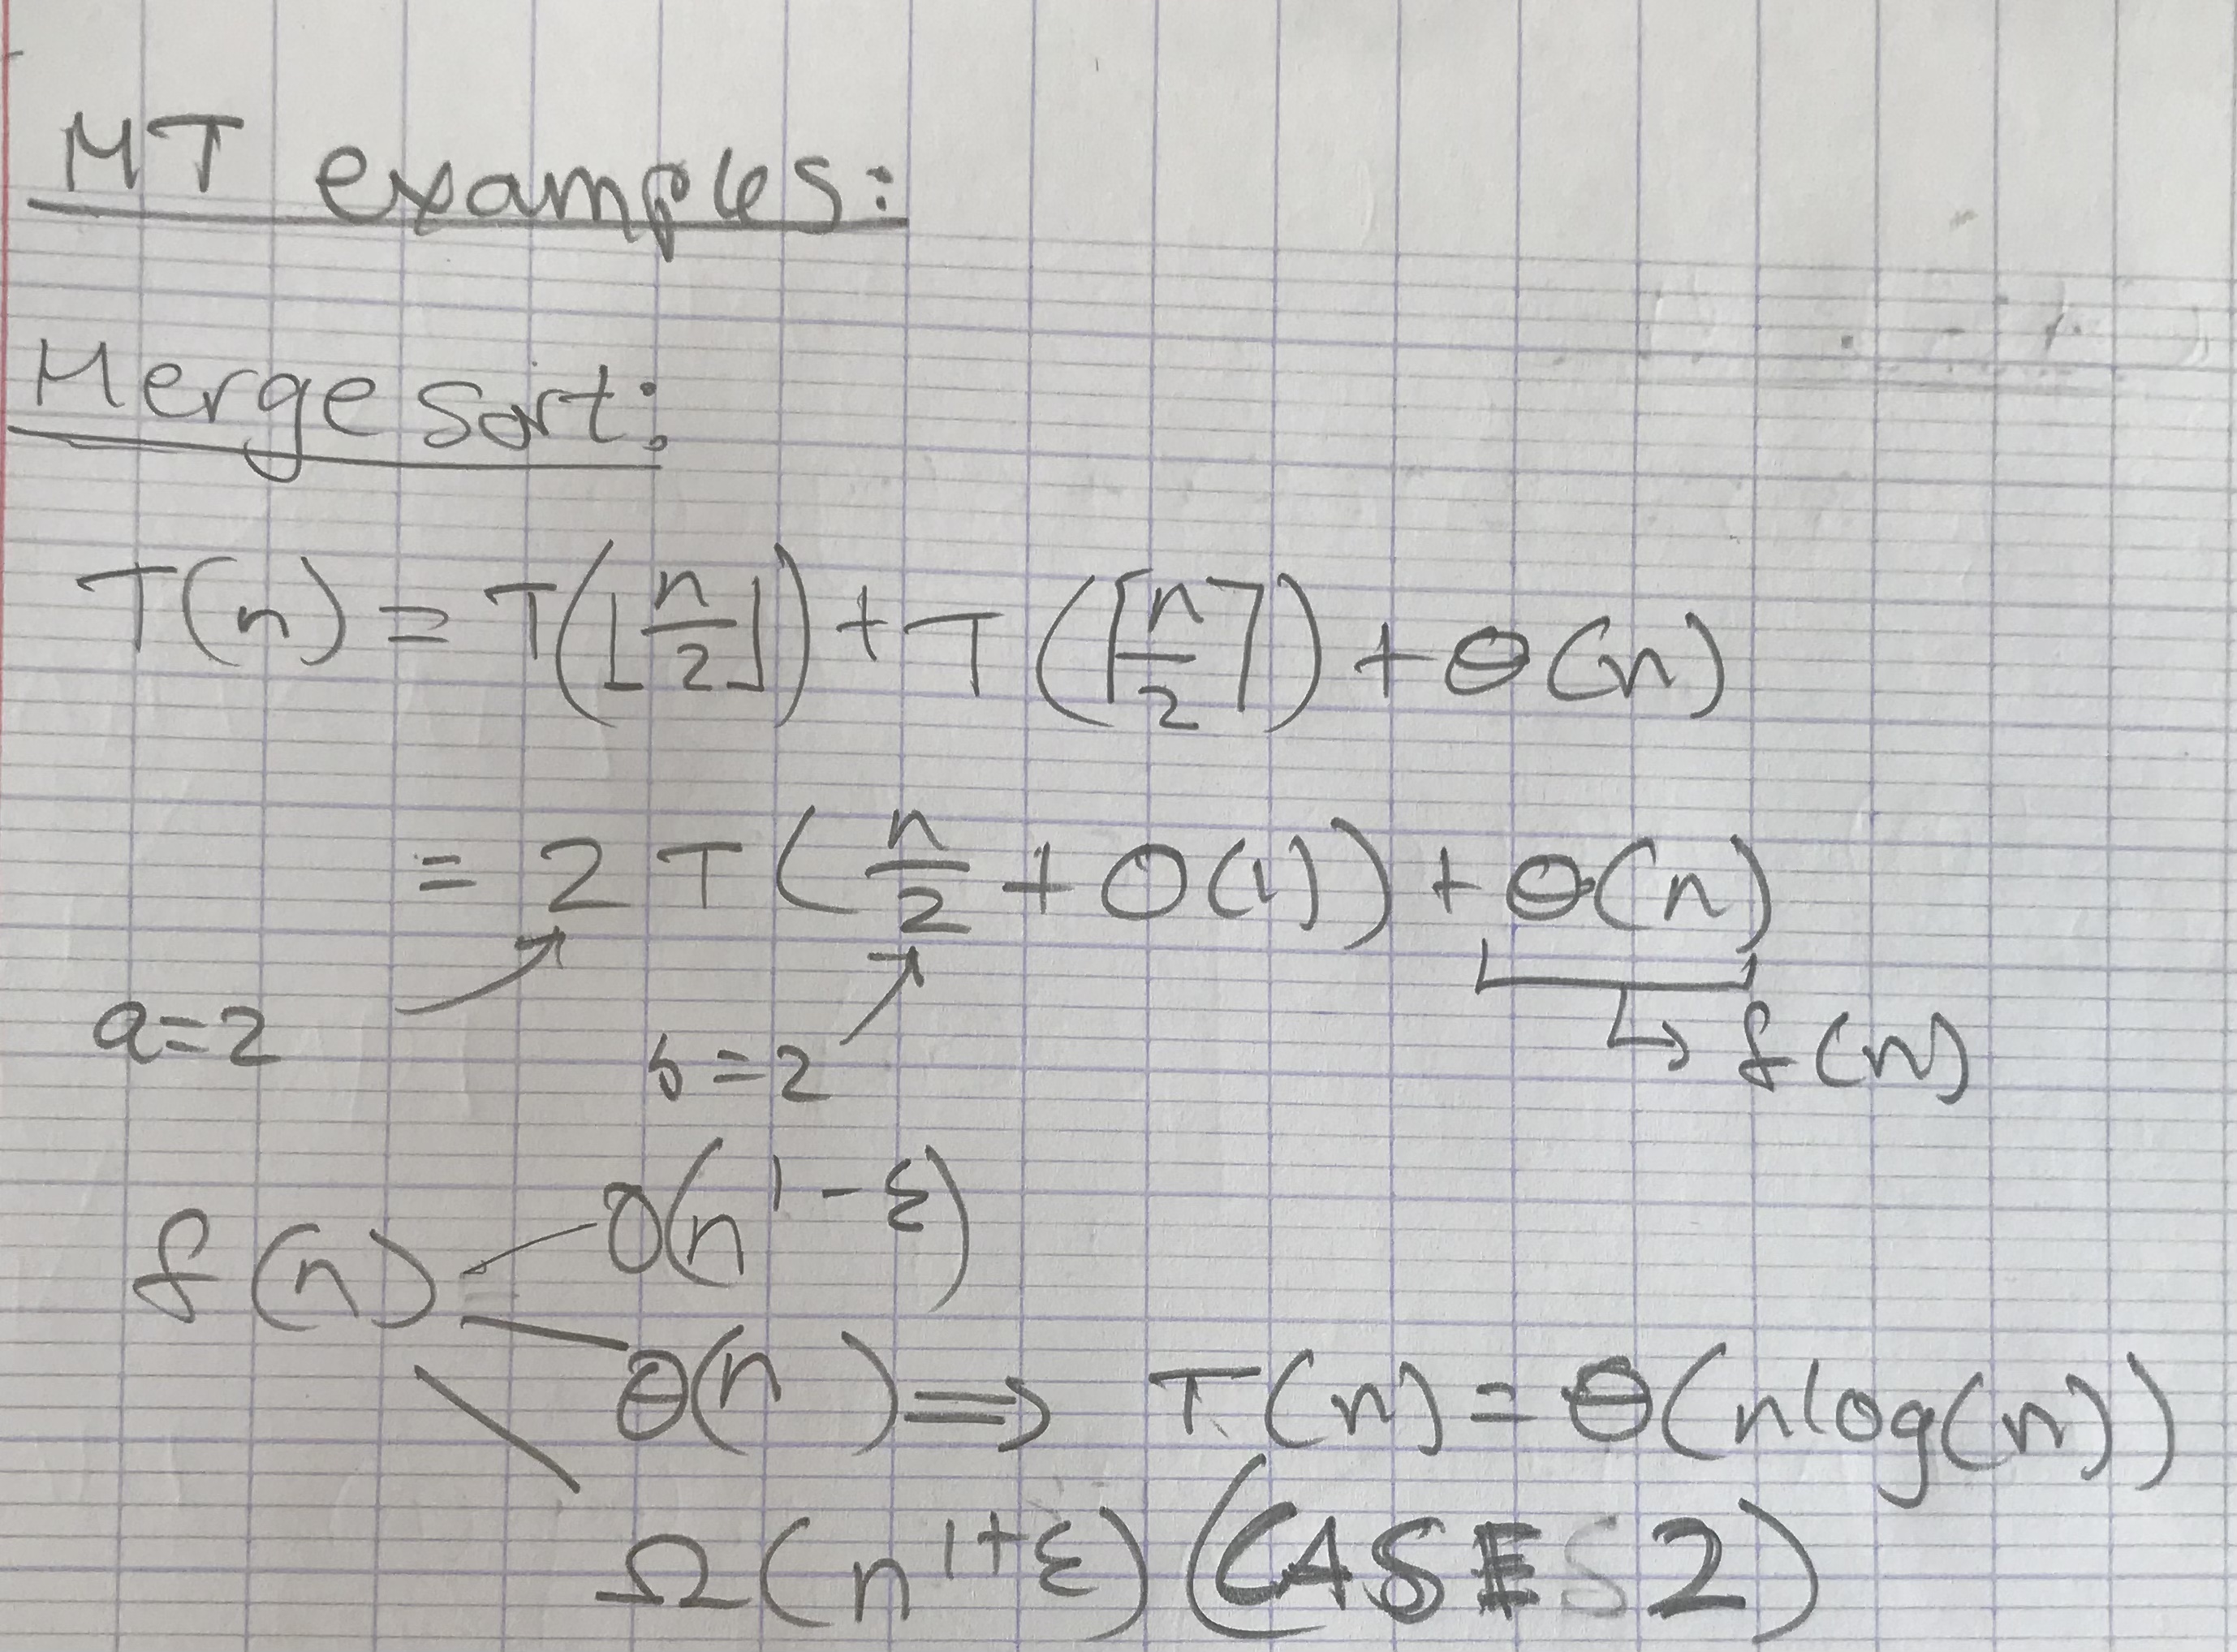 MT examples:
Merge sort:
T(n) = T(⌊n/2⌋) + T(⌈n/2⌉) + Θ(n)
= 2 T(n/2 + O(1)) + Θ(n)
a=2 b=2 f(n)
O(n^(1-ε))
f(n)
Θ(n) ⇒ T(n) = Θ(nlog(n))
Ω(n^(1+ε)) (CASE 2)